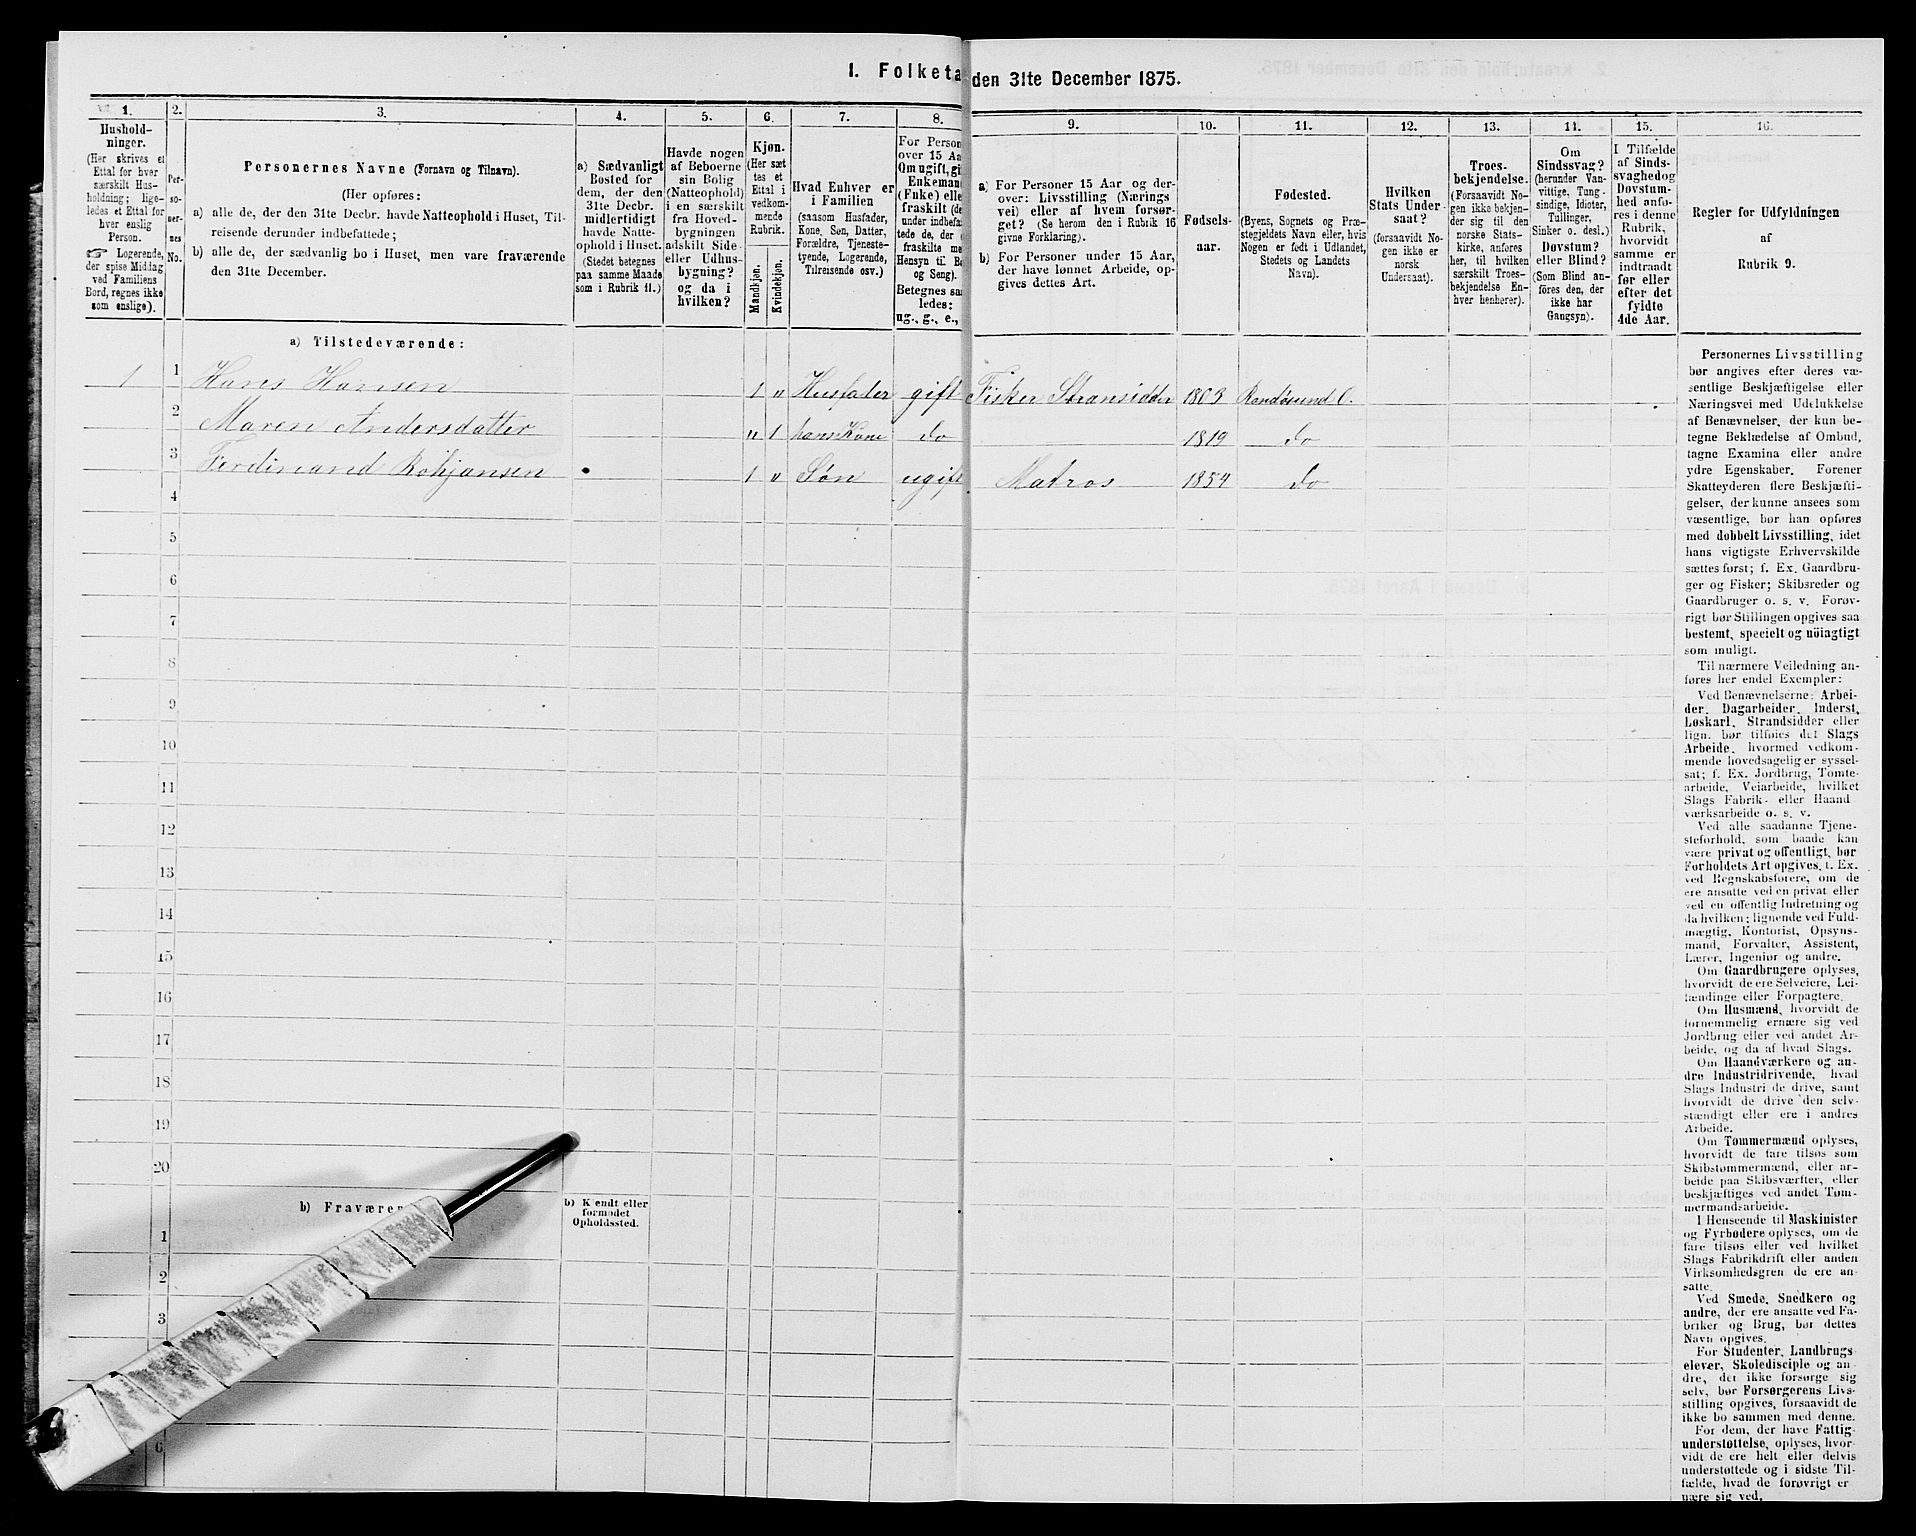 I. Folketa den 31te December 1875.
1.
Hushold-
ninger.
(Her skrives et
Ettal for hver
særskilt Hus-
holdning; lige-
ledes et Ettal for
hver enslig
Person.
☞ Logerende,
der spise Middag
ved Familiens
Bord, regnes ikke
som enslige).
2.
Per-
so-
ner-
nes
No.
3.
Personernes Navne (Fornavn og Tilnavn).
(Her opføres:
a) alle de, der den 31te Decbr. havde Natteophold i Huset, Til-
reisende derunder indbefattede;
b) alle de, der sædvanlig bo i Huset, men vare fraværende
den 31te December.
4.
a) Sædvanligt
Bosted for
dem, der den
31te Decbr.
midlertidigt
havde Natte-
ophold i Huset.
(Stedet betegnes
paa samme Maade
som i Rubrik 11.)
5.
Havde nogen
af Beboerne
sin Bolig
(Natteophold)
i en særskilt
fra Hoved-
bygningen
adskilt Side-
eller Udhus-
bygning?
og da i
hvilken?
6.
Kjøn.
(Her sæt
tes et
Ettal i
vedkom-
mende
Rubrik.
Mandkjøn.
Kvindekjøn.
7.
Hvad Enhver er
i Familien
(saasom Husfader,
Kone, Søn, Datter,
Forældre, Tjeneste-
tyende, Logerende,
Tilreisende osv.)
8.
For Person
over 15 Aa
Om ugift, gi
Enkemand
(Enke) elle
fraskilt (de
under indbefat
tede de, der e
fraskilte me
Hensyn til Bo
og Seng).
Betegnes saa
ledes:
ug., g., e.,
9.
a) For Personer 15 Aar og der-
over: Livsstilling (Nærings
vei) eller af hvem forsør-
get? (Se herom den i Rubrik 16
givne Forklaring).
b) For Personer under 15 Aar,
der have lønnet Arbeide, op-
gives dettes Art.
10.
Fødsels-
aar.
11.
Fødested.
(Byens, Sognets og Præ-
stegjeldets Navn eller, hvis
Nogen er født i Udlandet,
Stedets og Landets
Navn).
12.
Hvilken
Stats Under-
saat?
(forsaavidt No-
gen ikke er
norsk
Undersaat).
13.
Troes-
bekjendelse.
(Forsaavidt No-
gen ikke bekjen-
der sig til den
norske Stats-
kirke, anføres
her, til hvilken
særskilt Troes-
bekjendelse En-
hver henhører).
14.
Om
Sindssvag?
(herunder Van-
vittige, Tung-
sindige, Idioter,
Tullinger,
Sinker o. desl.)
Døvstum?
eller Blind?
(Som Blind an-
føres den, der
ikke har
Gangsyn).
15.
I Tilfælde
af Sinds-
svaghed og
Døvstum-
hed anfø-
res i denne
Rubrik,
hvorvidt
samme er
indtraadt
før eller
efter det
fyldte
4de Aar.
16.
Regler for Udfyldningen
af
Rubrik 9.
a) Tilstedeværende:
1 1 Hans Hansen 1 " Husfader gift Fisker Stransidder 1803 Randøsund O.
2 Maren Andersdatter " 1 hans Kone do 1819 do
3 Ferdinand 1 " Søn ugift Matros 1854 do
4
5
6
7
8
9
10
11
12
13
14
15
16
17
18
19
20
b) Fravære
b) Kjendt eller
formodet
Opholdssted.
1
2
3
6
Personernes Livsstilling
bør angives efter deres væ-
sentlige Beskjæftigelse eller
Næringsvei med Udelukkelse
af Benævnelser, der kun be-
tegne Beklædelse af Ombud,
tagne Examina eller andre
ydre Egenskaber. Forener
Skatteyderen flere Beskjæfti-
gelser, der kunne ansees som
væsentlige, bør han opføres
med dobbelt Livsstilling, idet
hans vigtigste Erhvervskilde
sættes først; f. Ex. Gaardbru-
ger og Fisker; Skibsreder og
Gaardbruger o. s. v. Forøv-
rigt bør Stillingen opgives saa
bestemt, specielt og nöiagtigt
som muligt.
Til nærmere Veiledning an-
føres her endel Exempler:
Ved Benævnelserne: Arbei-
der, Dagarbeider, Inderst,
Løskarl, Strandsidder eller
lign. bør tilføies det Slags
Arbeide, hvormed vedkom-
mende hovedsagelig er syssel-
sat; f. Ex. Jordbrug, Tomte-
arbeide, Veiarbeide, hvilket
Slags Fabrik- eller Haand
værksarbeide o. s. v.
Ved alle saadanne Tjene-
steforhold, som baade kan
være privat og offentligt, bør
Forholdets Art opgives, t. Ex.
ved Regnskabsførere, om de
ere ansatte ved en privat eller
ved en offentlig Indretning og
da hvilken; lignende ved Fuld-
mægtig, Kontorist, Opsyns-
mand, Forvalter, Assistent,
Lærer, Ingeniør og andre.
Om Gaardbrugere oplyses,
hvorvidt de ere Selveiere, Lei-
lændinge eller Forpagtere.
Om Husmænd, hvorvidt de
fornemmelig ernære sig ved
Jordbrug eller ved andet Ar-
beide, og da af hvad Slags.
Om Haandværkere og an-
dre Industridrivende, hvad
Slags Industri de drive, samt
hvorvidt de drive den selv-
stændigt eller ere i andres
Arbeide.
Om Tømmermænd oplyses,
hvorvidt de fare tilsøs som
Skibstømmermænd, eller ar-
beide paa Skibsværfter, eller
beskjæftiges ved andet Tøm-
mermandsarbeide.
I Henseende til Maskinister
og Fyrbødere oplyses, om de
fare tilsøs eller ved hvilket
Slags Fabrikdrift eller anden
Virksomhedsgren de ere an-
satte.
Ved Smede, Snedkere og
andre, der ere ansatte ved Fa-
briker og Brug, bør dettes
Navn opgives.
For Studenter, Landbrugs
elever, Skoledisciple og an-
dre, det ikke forsørge sig
selv, bør Forsørgerens Livs-
stilling opgives, forsaavidt de
ikke bo sammen med denne.
For dem, der have Fattig-
understøttelse, oplyses, hvor-
vidt de ere helt eller delvis
understøttede og i sidste Til-
fælde, hvad de forøvrigt er
nære sig ved.